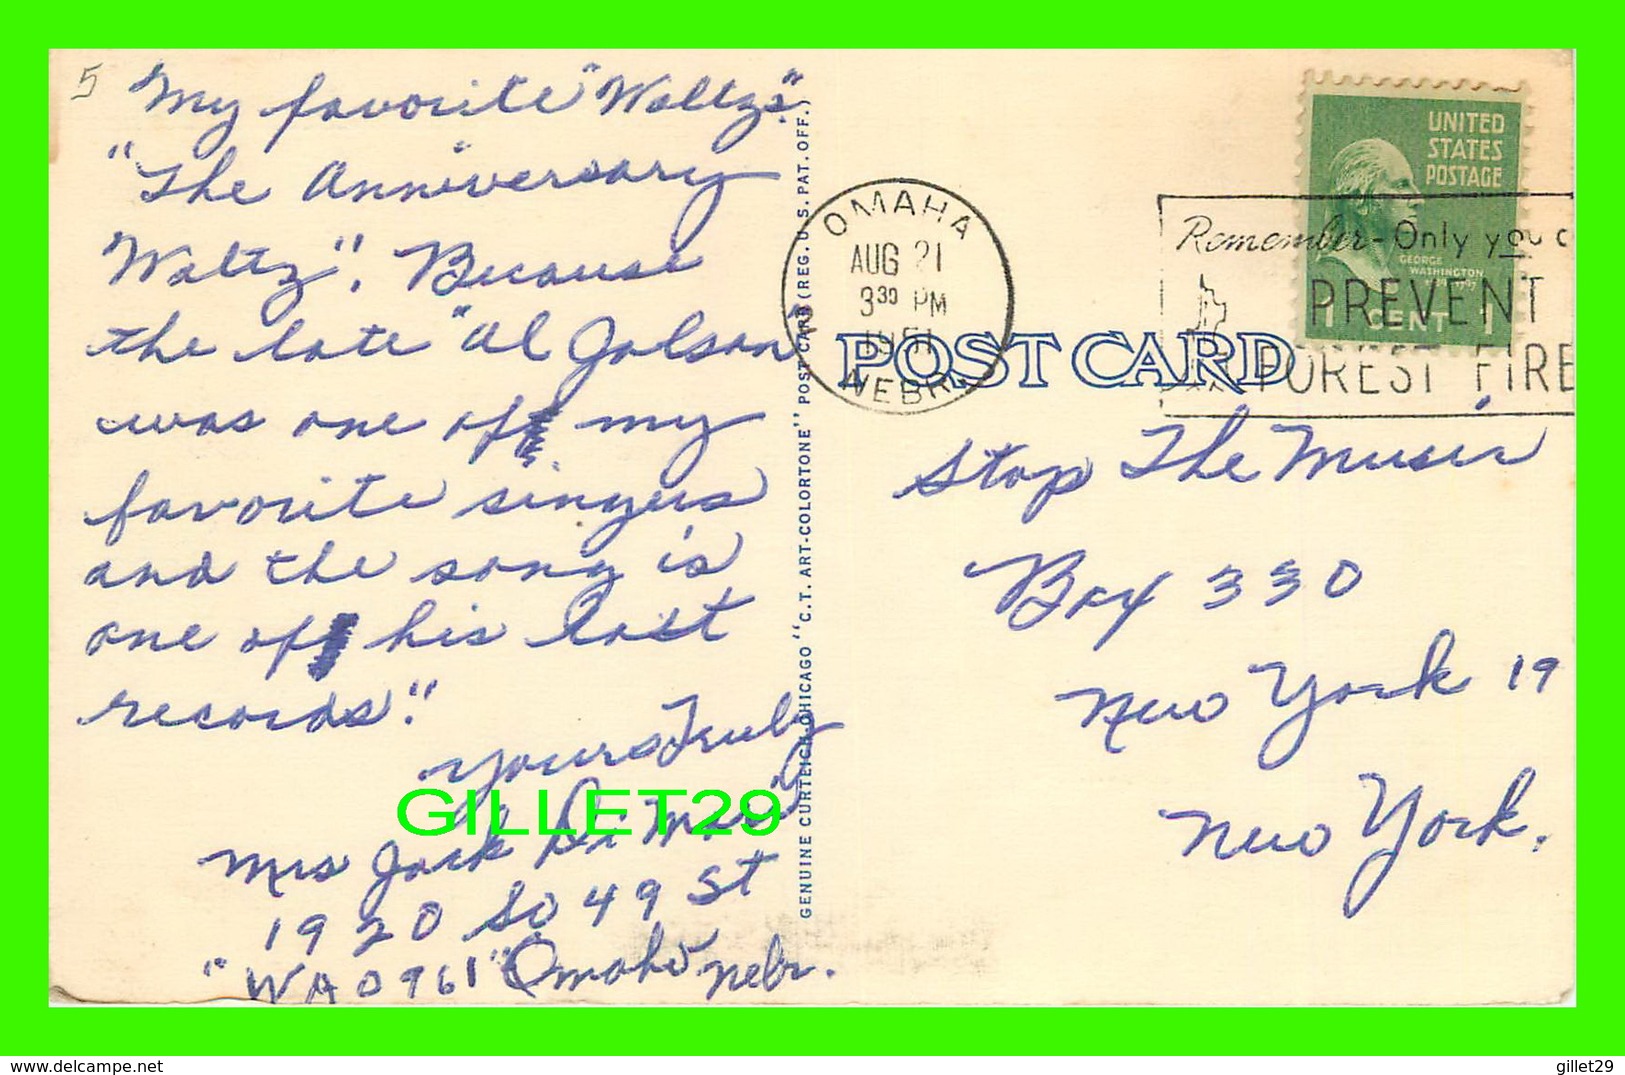 5
"My favorite "Waltzs".
"The Anniversary
Waltz". Because
the late "Al Jolson"
was one of my
favorite singers
and the song is
one of his last
records."
Yours Truly
Mrs Jack Di Mari
1920 So 49 St
"WA 0961" Omaha Nebr.
GILLET29
GENUINE CURTEICH-CHICAGO "C.T. ART-COLORTONE" POST CARD (REG. U. S. PAT. OFF.)
OMAHA
AUG 21
3 30 PM
1951
NEBR.
POST CARD
UNITED
STATES
POSTAGE
GEORGE
WASHINGTON
1 CENT 1
Remember- Only you c
PREVENT
FOREST FIRE
Stop The Music
Box 330
New York 19
New York.
http://www.delcampe.net
gillet29